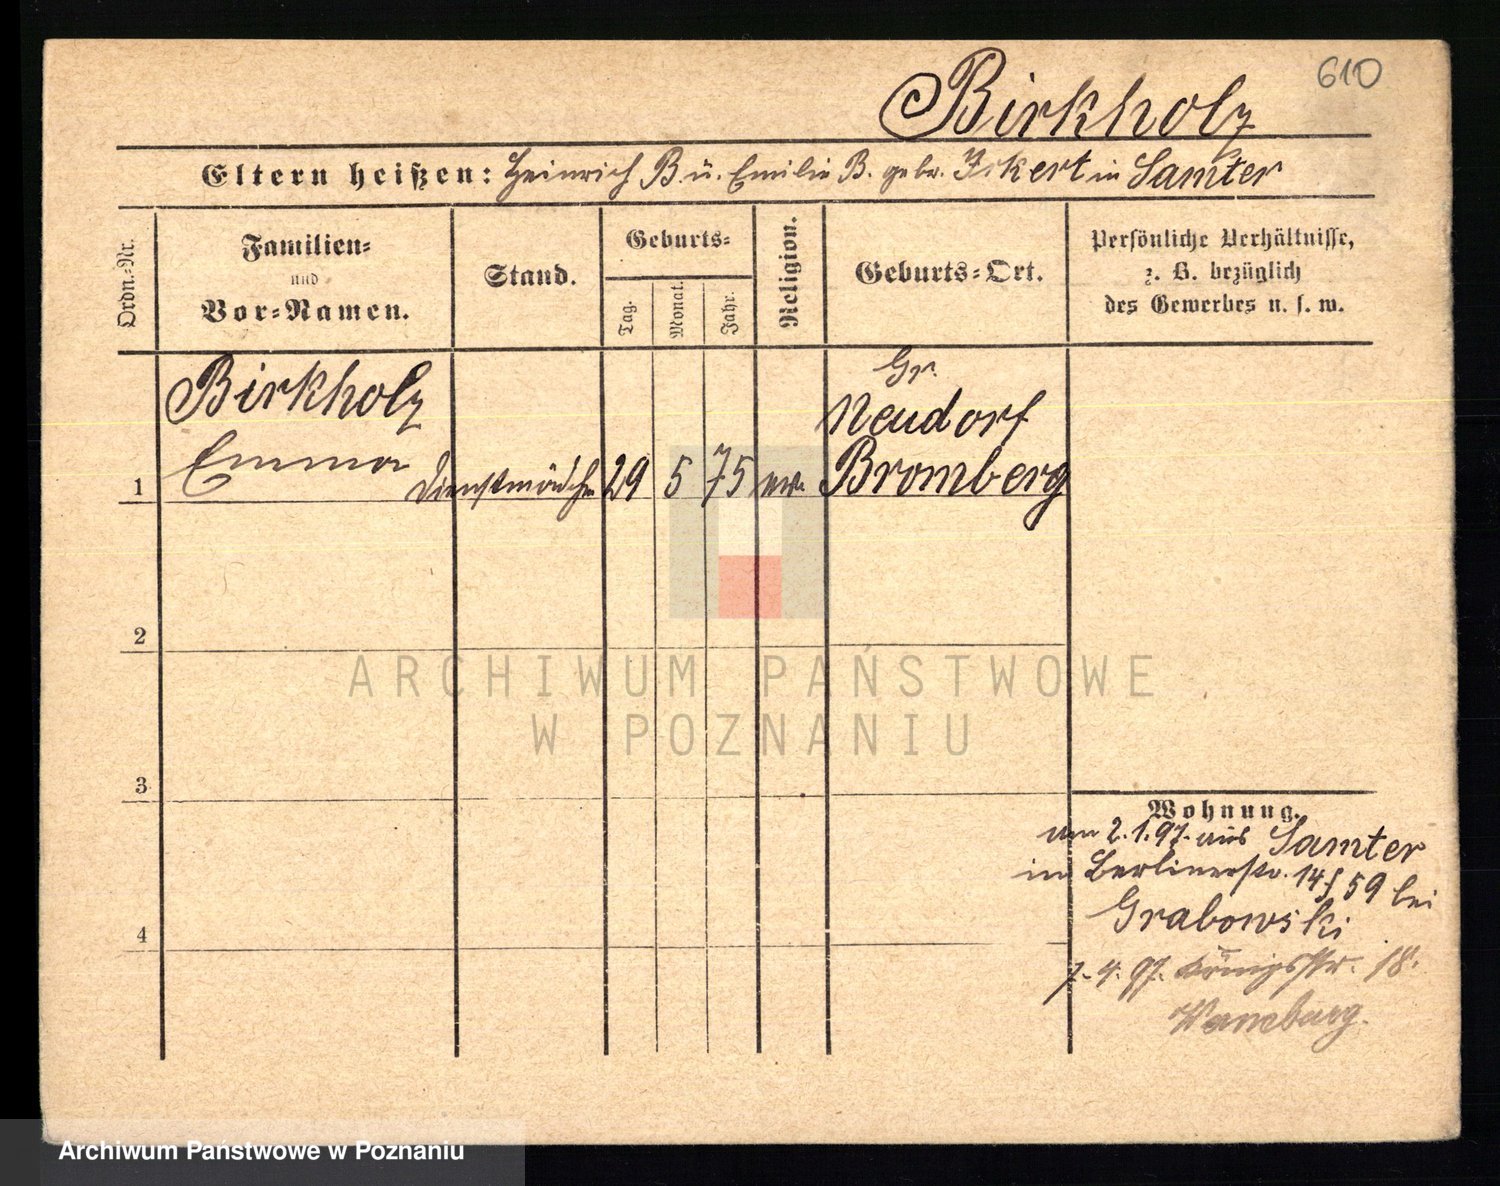 610
Birkholz
Eltern heißen: Heinrich B. u. Emilie B. gebr. in Samter
Ordn.-Nr.
Familien-
und
Vor-Namen.
Stand.
Geburts-
Tag.
Monat.
Jahr.
Religion.
Geburts-Ort.
Persönliche Verhältnisse,
z. B. bezüglich
des Gewerbes u. s. w.
Birkholz
Emma
1
Dienstmädchen
29
5
75
ev.
Gr.
Neudorf
Bromberg
2
3
4
Wohnung.
am 2.1.97. aus Samter
in Berlinerstr. 14 59 bei
Grabowski
7.4.97. Königsstr. 18.
ARCHIWUM PAŃSTWOWE
W POZNANIU
Archiwum Państwowe w Poznaniu